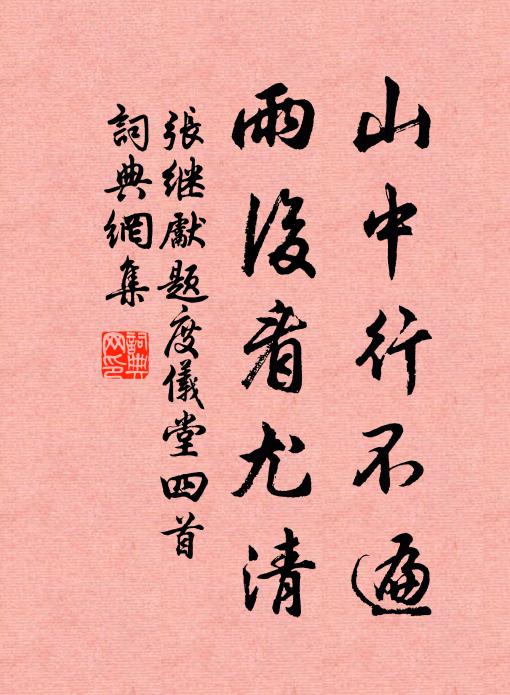 山中行不遍
雨後看尤清
張継獻题度儀堂四首
詞典網集
詞典
网印